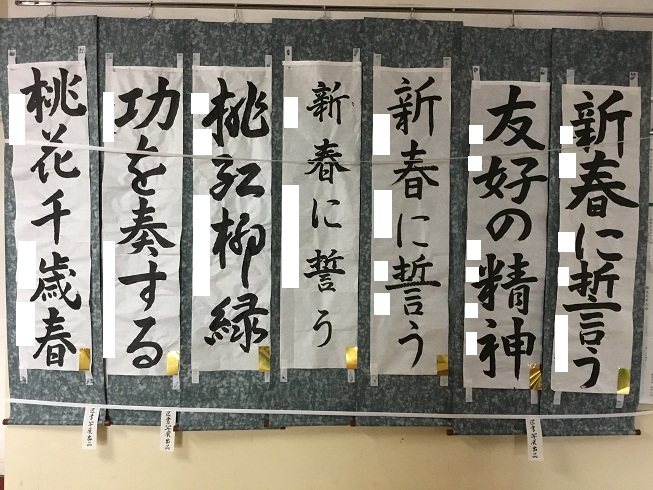 新春に誓う
友好の精神
新春に誓う
新春に誓う
桃紅柳緑
功を奏する
桃花千歳春